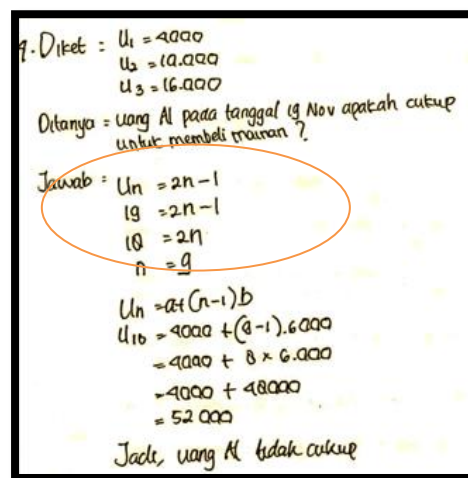 9. Diket : U1 = 4000
U2 = 10.000
U3 = 16.000
Ditanya = uang Al pada tanggal 19 Nov apakah cukup
untuk membeli mainan ?
Jawab : Un = 2n-1
19 = 2n-1
18 = 2n
n = 9
Un = a+(n-1)b
U10 = 4000 + (9-1).6000
= 4000 + 8 x 6.000
= 4000 + 48000
= 52 000
Jadi, uang Al tidak cukup